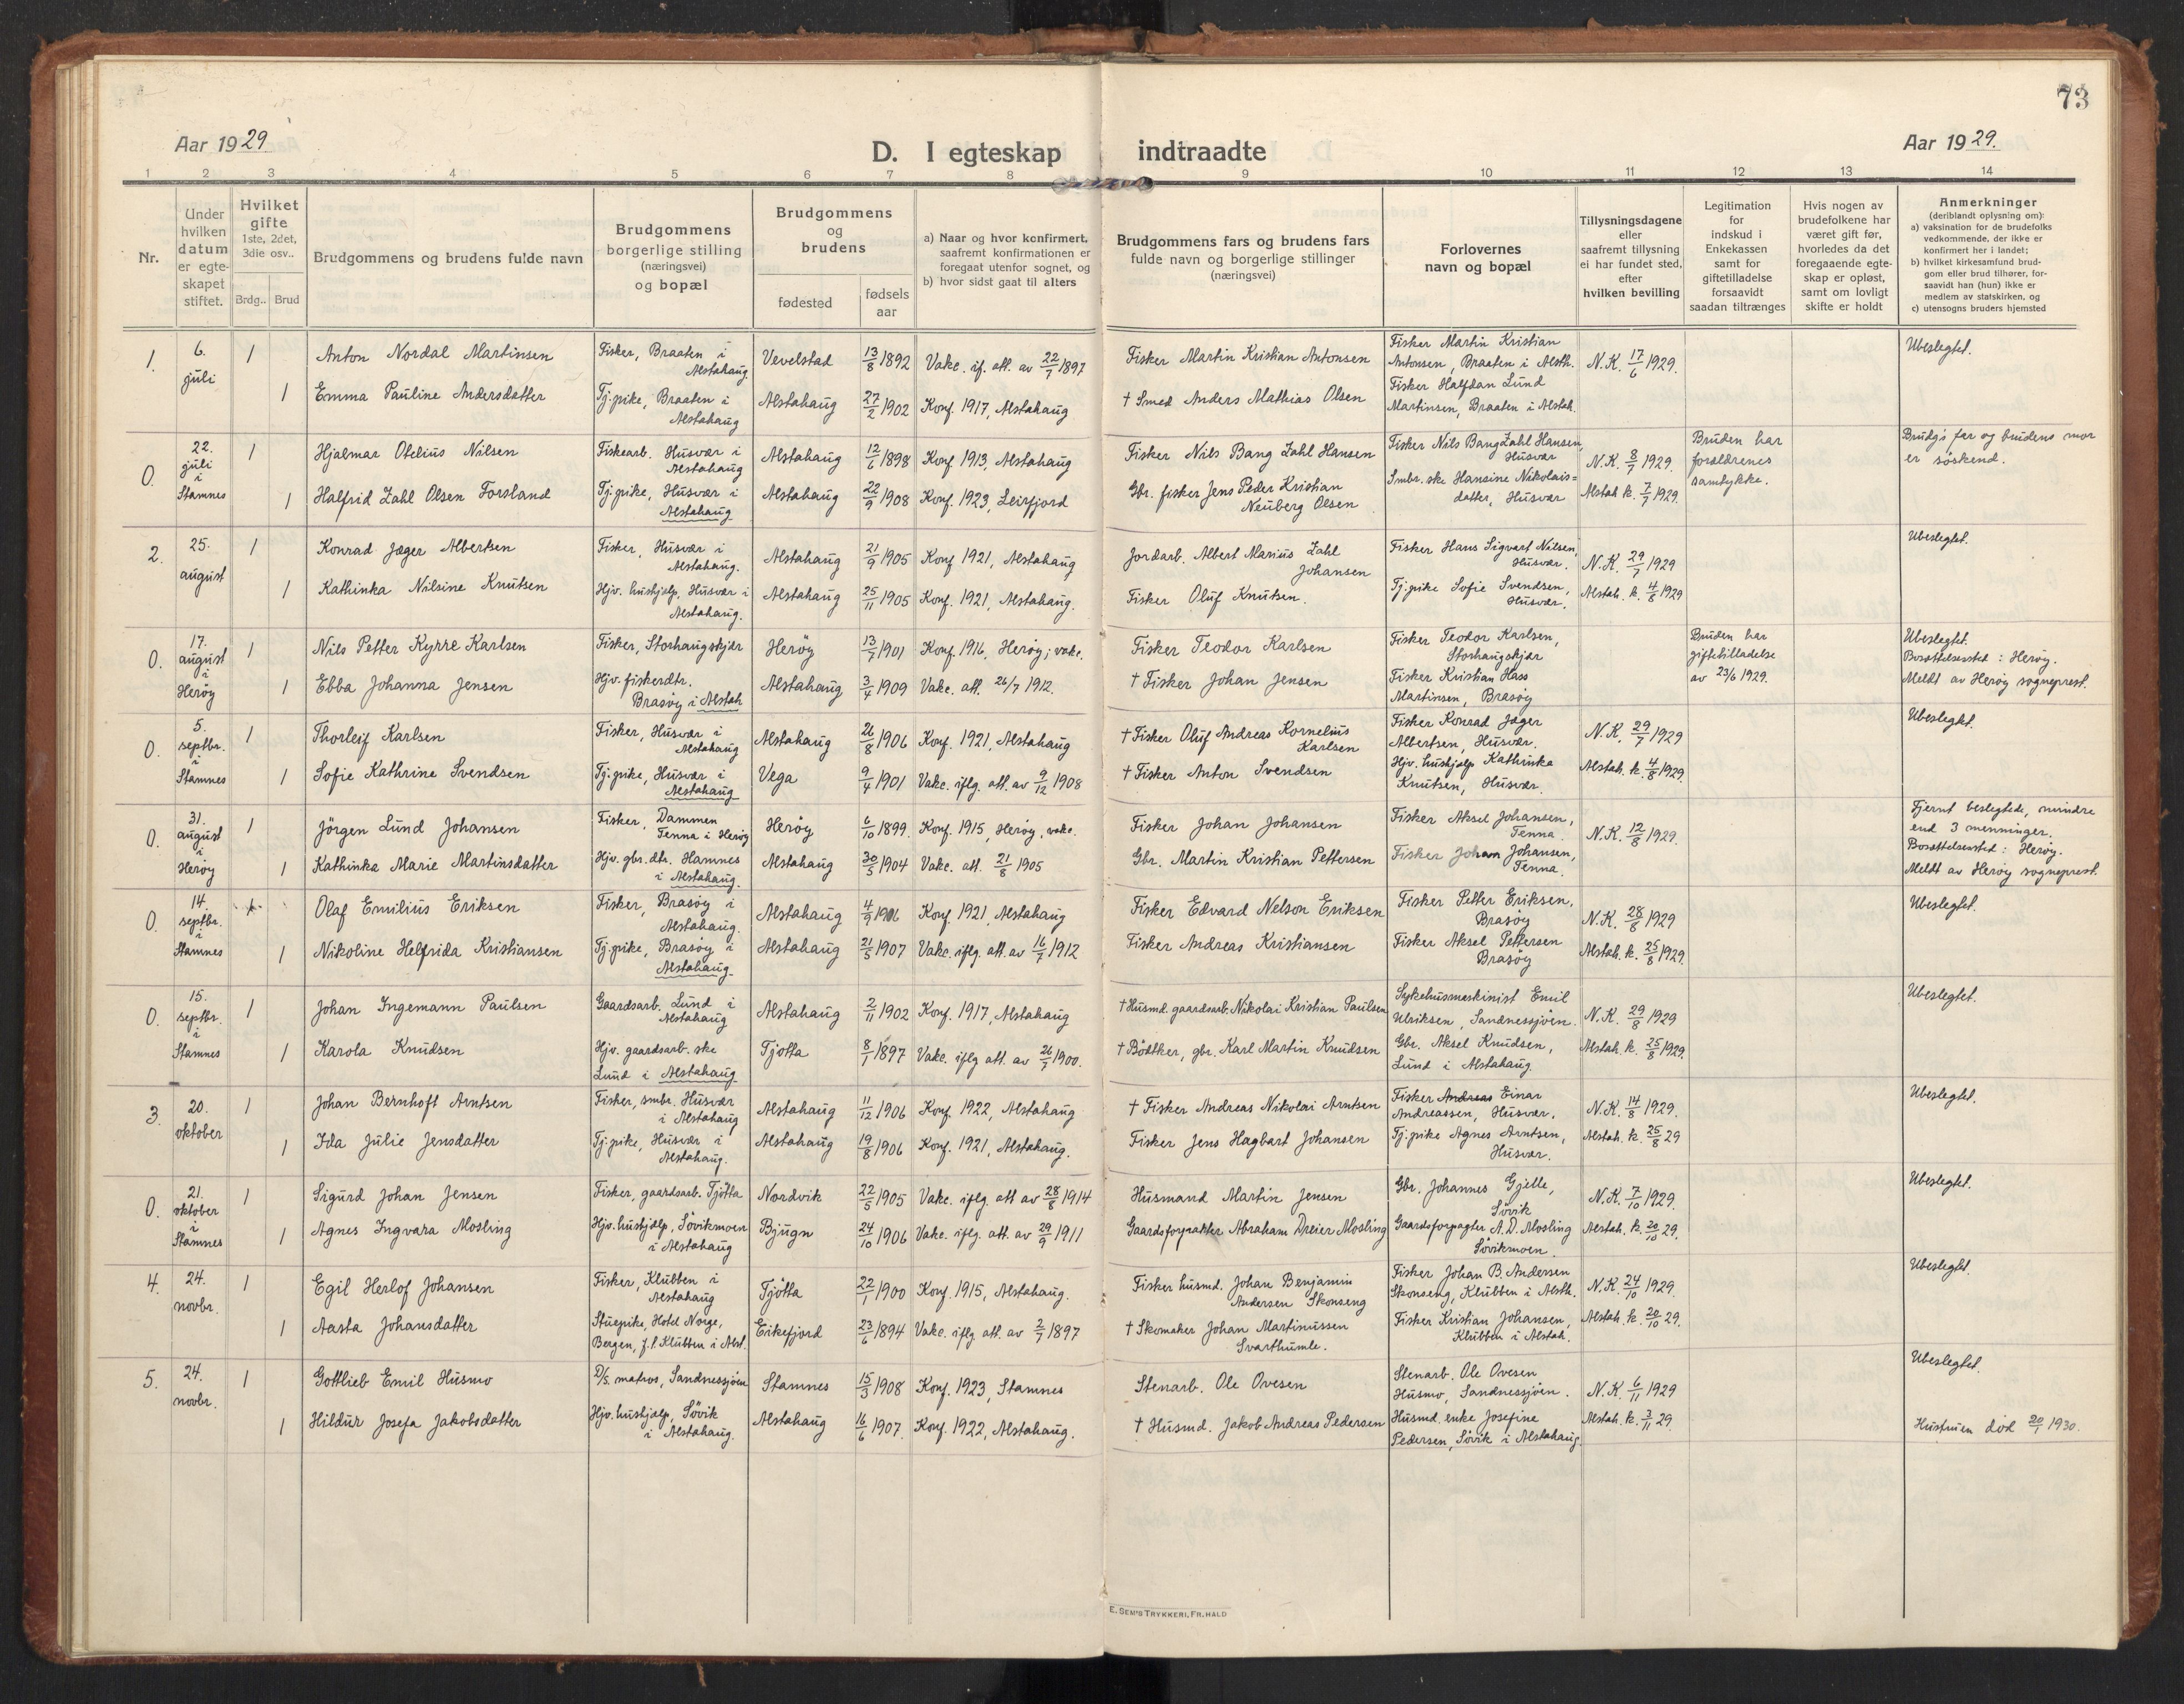 73
Aar 1929
D. I egteskap indtraadte
Aar 1929.
1 2 3 4 5 6 7 8 9 10 11 12 13 14
Nr.
Under
hvilken
datum
er egte-
skapet
stiftet.
Hvilket
gifte
1ste, 2det,
3die osv..
Brdg.. Brud
Brudgommens og brudens fulde navn
Brudgommens
borgerlige stilling
(næringsvei)
og bopæl
Brudgommens
og
brudens
fødested
fødsels
aar
a) Naar og hvor konfirmert,
saafremt konfirmationen er
foregaat utenfor sognet, og
b) hvor sidst gaat til alters
Brudgommens fars og brudens fars
fulde navn og borgerlige stillinger
(næringsvei)
Forlovernes
navn og bopæl
Tillysningsdagene
eller
saafremt tillysning
ei har fundet sted,
efter
hvilken bevilling
Legitimation
for
indskud i
Enkekassen
samt for
giftetilladelse
forsaavidt
saadan tiltrænges
Hvis nogen av
brudefolkene har
været gift før,
hvorledes da det
foregaaende egte-
skap er opløst,
samt om lovligt
skifte er holdt
Anmerkninger
(deriblandt oplysning om):
a) vaksination for de brudefolks
vedkommende, der ikke er
konfirmert her i landet;
b) hvilket kirkesamfund brud-
gom eller brud tilhører, for-
saavidt han (hun) ikke er
medlem av statskirken, og
c) utensogns bruders hjemsted
1.
6.
juli
1
Anton Nordal Martinsen
Fisker, Braaten i
Alstahaug.
Vevelstad
13/8 1892
Vakc. if. att. av 22/7 1897
Fisker Martin Kristian Antonsen
Fisker Martin Kristian
Antonsen, Braaten i Alsth.
N.K. 17/6 1929.
Ubeslegtet.
1
Emma Pauline Andersdatter
Tj.pike, Braaten i
Alstahaug
Alstahaug
27/2 1902
Konf. 1917, Alstahaug
† Smed Anders Mathias Olsen
Fisker Halfdan Lund
Martinsen, Braaten i Alstah.
0.
22.
juli
i
Stamnes
1
Hjalmar Otelius Nilsen
Fiskearb. Husvær i
Alstahaug
Alstahaug
12/6 1898
Konf 1913, Alstahaug
Fisker Nils Bang Zahl Hansen
Fisker Nils Bang Zahl Hansen,
Husvær
N.K. 8/7 1929.
Bruden har
forældrenes
samtykke.
Brudg's far og brudens mor
er söskend.
1
Halfrid Zahl Olsen Forsland
Tj.pike, Husvær i
Alstahaug
Alstahaug
22/9 1908
Konf. 1923, Leirfjord
Gbr. fisker Jens Peder Kristian
Neuberg Olsen
Smbr. ske Hansine Nikolais=
datter, Husvær
Alstah k. 7/7 1929.
2.
25.
august
1
Konrad Jæger Albertsen
Fisker, Husvær i
Alstahaug.
Alstahaug
21/9 1905
Konf. 1921, Alstahaug
Jordarb. Albert Marius Zahl
Johansen
Fisker Hans Sigvart Nilsen,
Husvær.
N.K. 29/7 1929
Ubeslegtet.
1
Kathinka Nilsine Knutsen
Hjv. hushjelp, Husvær i
Alstahaug.
Alstahaug
25/11 1905
Konf. 1921, Alstahaug.
Fisker Oluf Knutsen.
Tj.pike Sofie Svendsen,
Husvær.
Alstah. k. 4/8 1929
0.
17.
august
i
Heröy
1
Nils Petter Kyrre Karlsen
Fisker, Storhaugskjær
Heröy
13/7 1901
Konf. 1916, Heröy; vakc.
Fisker Teodor Karlsen
Fisker Teodor Karlsen,
Storhaugskjær
Bruden har
giftetilladelse
av 23/6 1929.
Ubeslegtet.
Bosættelsessted: Heröy.
Meldt av Heröy sogneprest.
1
Ebba Johanna Jensen
Hjv. fiskerdtr.
Brasöy i Alstah
Alstahaug
3/4 1909
Vakc. att. 26/7 1912.
† Fisker Johan Jensen
Fisker Kristian Hass
Martinsen, Brasöy
0.
5.
septbr.
i
Stamnes
1
Thorleif Karlsen
Fisker, Husvær i
Alstahaug
Alstahaug
26/8 1906
Konf. 1921, Alstahaug
† Fisker Oluf Andreas Kornelius
Karlsen
Fisker Konrad Jæger
Albertsen, Husvær.
N.K. 29/7 1929
Ubeslegtet.
1
Sofie Kathrine Svendsen
Tj.pike, Husvær i
Alstahaug
Vega
9/4 1901
Vakc. iflg. att. av 9/12 1908
† Fisker Anton Svendsen
Hjv. hushjælp Kathinka
Knutsen, Husvær.
Alstah. k. 4/8 1929.
0.
31.
august
i
Heröy
1
Jörgen Lund Johansen
Fisker, Dammen
Tenna i Heröy
Heröy
6/10 1899.
Konf. 1915, Heröy, vakc.
Fisker Johan Johansen
Fisker Aksel Johansen,
Tenna.
N.K. 12/8 1929.
Fjernt beslegtede, mindre
end 3 menninger.
Bosættelsessted: Heröy.
Meldt av Heröy sogneprest.
1
Kathinka Marie Martinsdatter
Hjv. gbr. dtr. Hamnes
i Alstahaug.
Alstahaug
30/5 1904
Vakc. att. 21/8 1905
Gbr. Martin Kristian Pettersen
Fisker Johan Johansen,
Tenna.
0.
14.
septbr.
i
Stamnes
1
Olaf Emilius Eriksen
Fisker, Brasöy i
Alstahaug.
Alstahaug
4/9 1906
Konf. 1921, Alstahaug
Fisker Edvard Nelson Eriksen
Fisker Petter Eriksen,
Brasöy
N.K. 28/8 1929
Ubeslegtet.
1
Nikoline Helfrida Kristiansen
Tj.pike, Brasöy i
Alstahaug.
Alstahaug
21/5 1907
Vakc. iflg. att. av 16/7 1912
Fisker Andreas Kristiansen
Fisker Aksel Pettersen
Brasöy
Alstah. k. 25/8 1929.
0.
15.
septbr.
i
Stamnes
1
Johan Ingemann Paulsen
Gaardsarb. Lund i
Alstahaug
Alstahaug
2/11 1902
Konf. 1917, Alstahaug
† Husmd. gaardsarb. Nikolai Kristian Paulsen
Sykehusmaskinist Emil
Ulriksen, Sandnessjöen.
N.K. 29/8 1929
Ubeslegtet.
1
Karola Knudsen
Hjv. gaardsarb. ske
Lund i Alstahaug
Tjötta
8/1 1897
Vakc. iflg att. av 26/7 1900.
† Bödtker, gbr. Karl Martin Knudsen
Gbr. Aksel Knudsen,
Lund i Alstahaug
Alstah. k. 25/8 1929.
3.
20.
oktober
1
Johan Bernhoft Arntsen
Fisker, smbr. Husvær
i Alstahaug
Alstahaug
11/12 1906
Konf. 1922, Alstahaug
† Fisker Andreas Nikolai Arntsen
Fisker Andreas Einar
Andreassen, Husvær.
N.K. 14/8 1929.
Ubeslegtet.
1
Ida Julie Jensdatter
Tj.pike, Husvær i
Alstahaug.
Alstahaug
19/8 1906
Konf. 1921, Alstahaug.
Fisker Jens Hagbart Johansen
Tj.pike Agnes Arntsen,
Husvær.
Alstah. k. 25/8 29
0.
21.
oktober
i
Stamnes
1
Sigurd Johan Jensen
Fisker, gaardsarb. Tjötta
Nordvik
22/5 1905
Vakc. iflg. att av 28/8 1914
Husmand Martin Jensen
Gbr. Johannes Gjelle,
Sövik
N.K. 7/10 1929.
Ubeslegtet.
1
Agnes Ingvara Mosling
Hjv. hushjælp, Sövikmoen
i Alstahaug
Bjugn
24/10 1906
Vakc. iflg. att. av 29/9 1911
Gaardsforpakter Abraham Dreier Mosling
Gaardsforpagter A. D. Mosling
Sövikmoen.
Alstah. k. 20/10 29.
4.
24.
novbr.
1
Egil Herlof Johansen
Fisker, Klubben i
Alstahaug
Tjötta
22/1 1900
Konf. 1915, Alstahaug.
Fisker husmd. Johan Benjamin
Andersen Skonseng
Fisker Johan B. Andersen
Skonseng, Klubben i Alsth.
N.K. 24/10 1929.
Ubeslegtet.
1
Aasta Johansdatter
Stuepike, Hotel Norge,
Bergen, f.t. Klubben i Alst.
Eikefjord
23/6 1894
Vakc. iflg att. av 2/7 1897
† Skomaker Johan Martinussen
Svarthumle.
Fisker Kristian Johansen,
Klubben i Alstah.
Alstah. k. 20/10 29.
5.
24.
novbr.
1
Gottlieb Emil Husmo
D/S. matros, Sandnessjöen
Stamnes
15/3 1908
Konf. 1923, Stamnes
Stenarb. Ole Ovesen
Stenarb. Ole Ovesen
Husmo, Sandnessjöen.
N.K. 6/11 1929
Ubeslegtet.
1
Hildur Josefa Jakobsdatter
Hjv. hushjælp, Sövik
i Alstahaug.
Alstahaug
16/6 1907.
Konf. 1922, Alstahaug.
† Husmd. Jakob Andreas Pedersen
Husmd. enke Josefine
Pedersen, Sövik i Alstahaug.
Alstah. k. 3/11 29.
Hustruen död 20/1 1930.
E. SEM'S TRYKKERI, FR. HALD